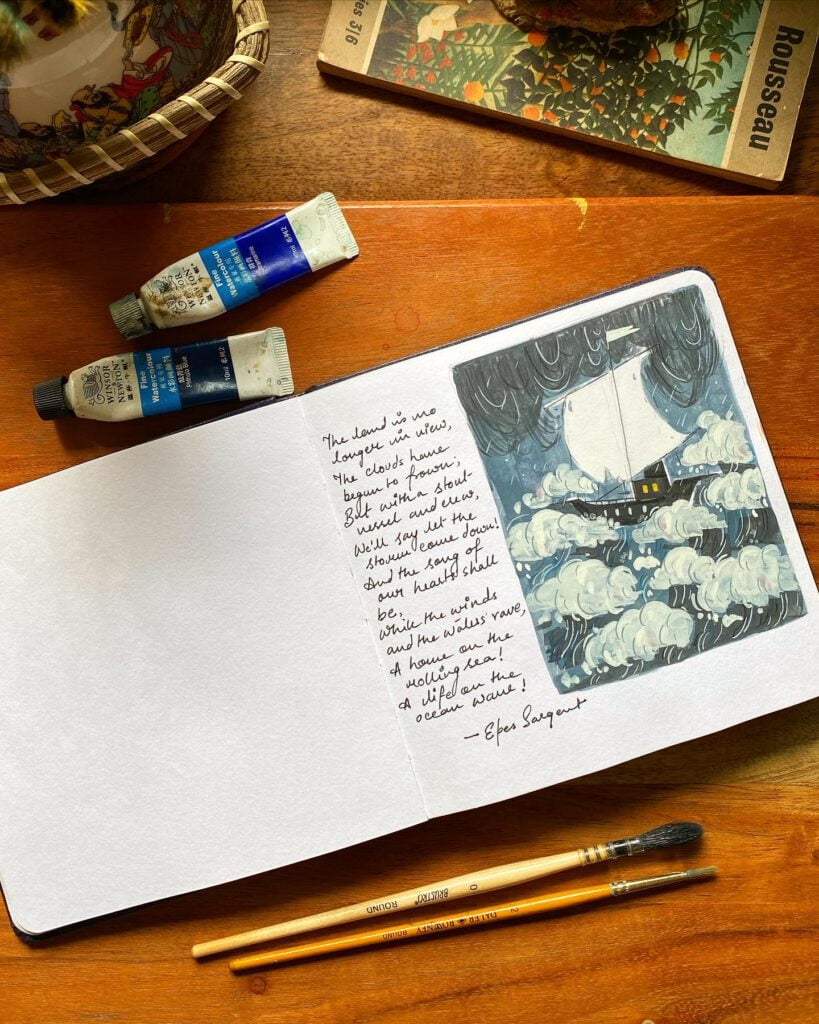 ies 3/6
Rousseau
Fine
Watercolour
WINSOR
& NEWTON
Fine
Watercolour
Prussian Blue
10ml 6.ME2
WINSOR
& NEWTON
The land is no
longer in view,
The clouds have
begun to frown;
But with a stout
vessel and crew,
We'll say let the
storm come down!
And the song of
our hearts shall
be,
While the winds
and the waters rave,
A home on the
rolling sea!
A life on the
ocean wave!
— Epes Sargent
0 BRUSTRO® ROUND
2 DALER ROWNEY ROUND